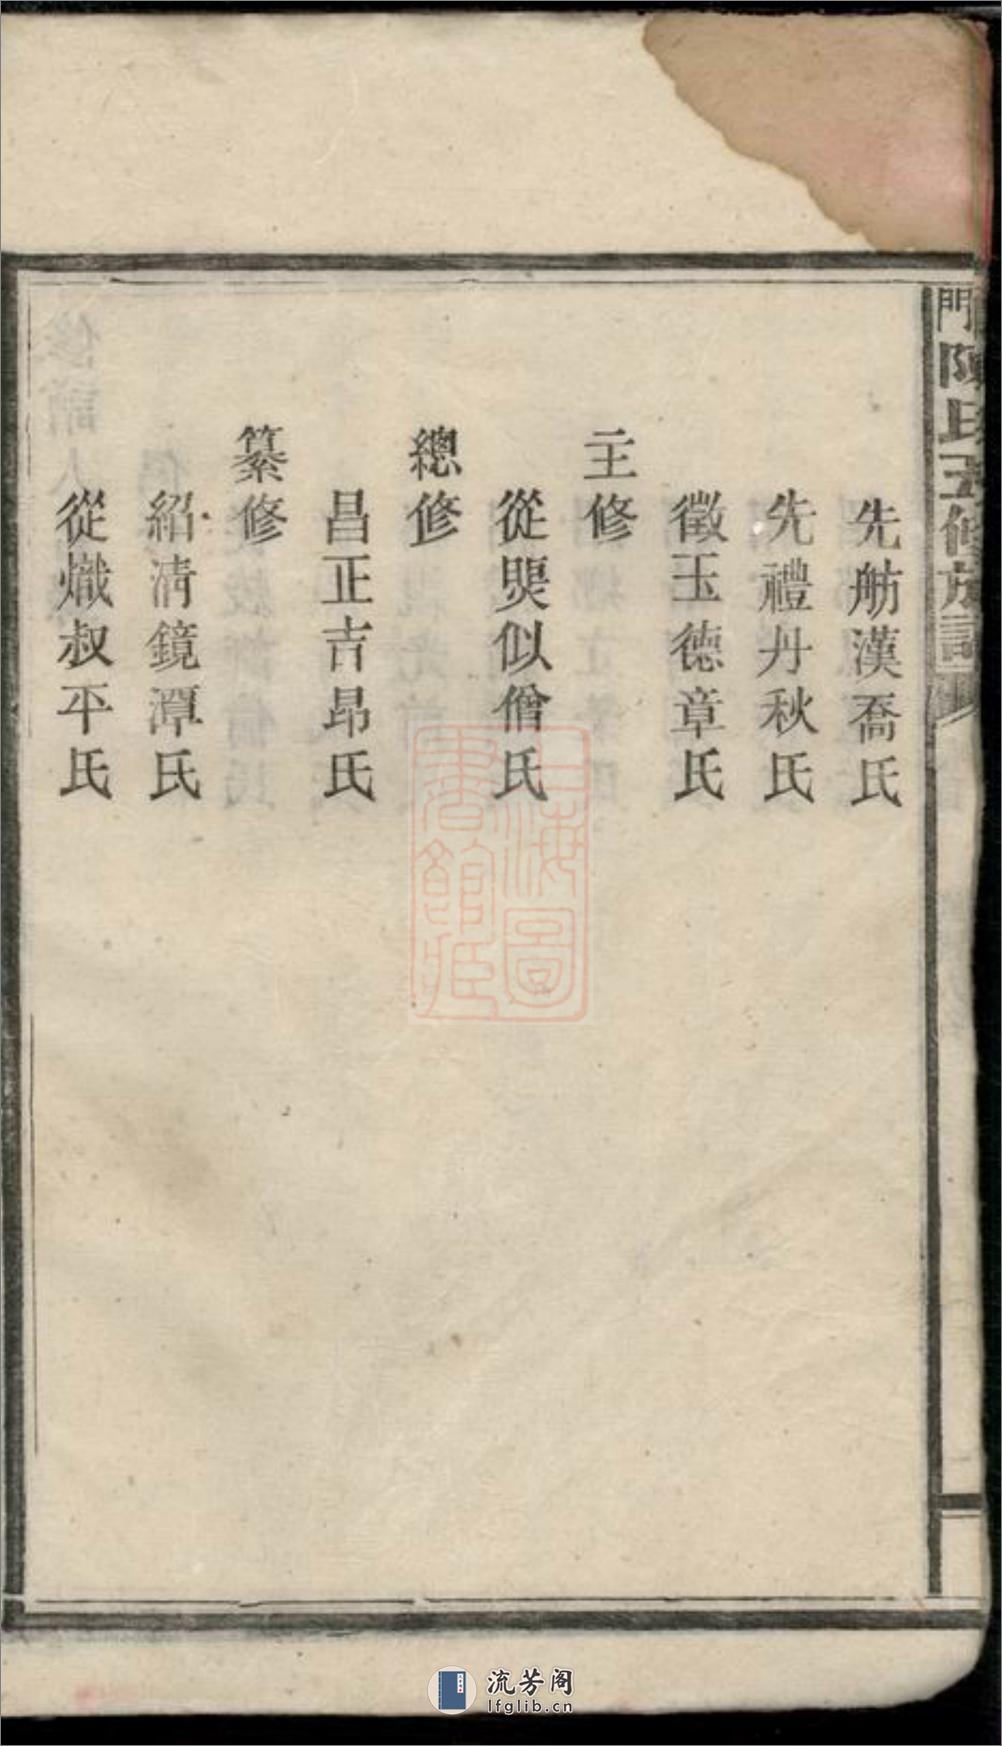 門陳氏五修族譜
先舫漢喬氏
先禮丹秋氏
徵玉德章氏
主修
從煚似僧氏
總修
昌正吉昂氏
纂修
紹清鏡潭氏
從熾叔平氏
上海圖
書館藏
流芳阁
lfglib.cn